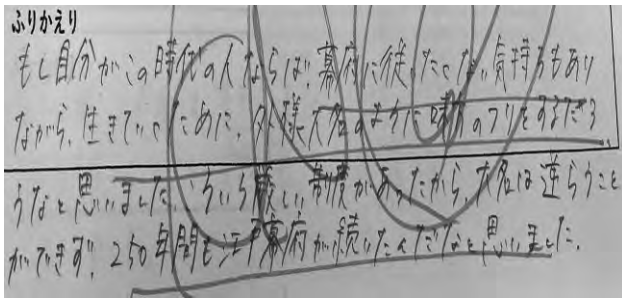 ふりかえり
もし自分がこの時代の人ならば、幕府に従いたくない気持ちもあり
ながら、生きていくために、外様大名のように味方のフリをするだろ
うなと思いました。いろいろ厳しい制度があったから、大名は逆らうこと
ができず、250年間も江戸幕府が続いたんだなと思いました。